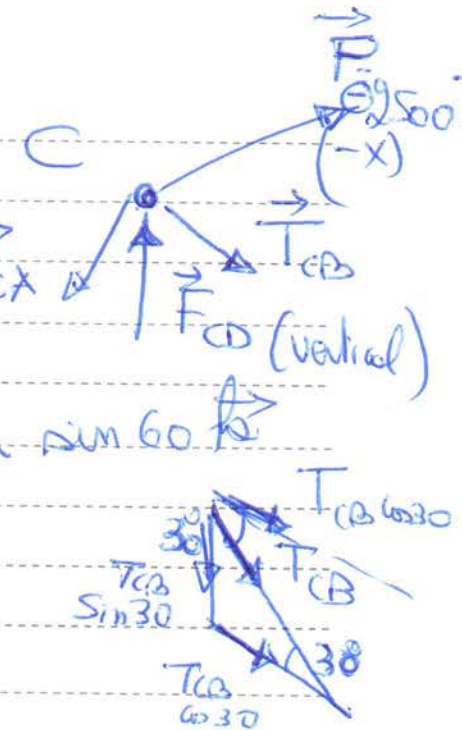 P
C
2500
(-X)
T CB
CA
F CD (vertical)
sin 60 k
T CB cos30
30°
T CB
T CB
Sin 30
30
T CB
cos30